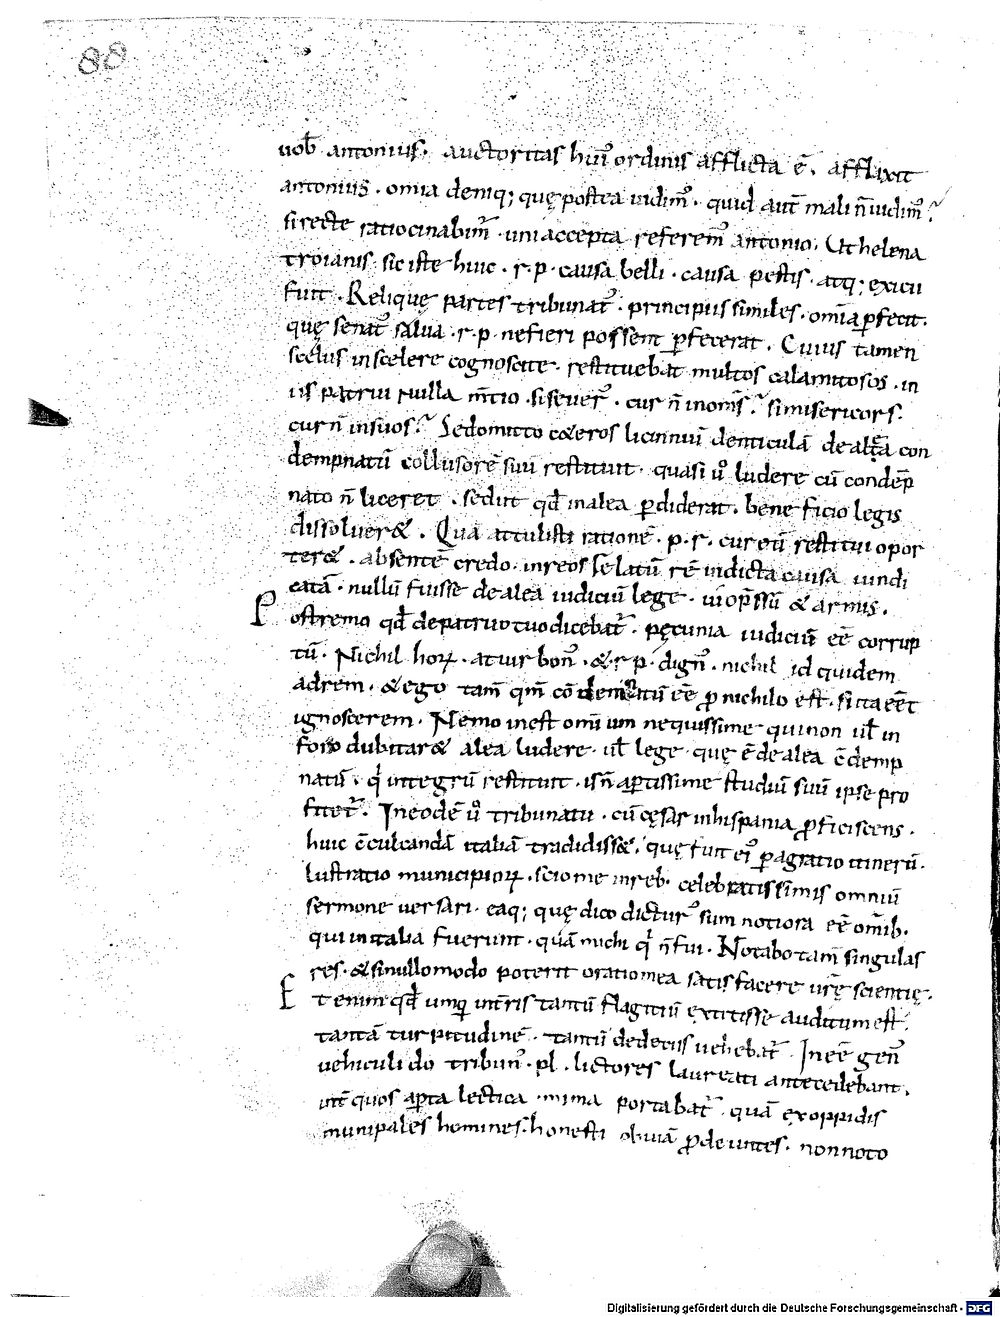 88
uob̄ antonius. auctoritas hui᾿ ordinis afflicta ē. afflixit
antonius. om̄ia deniq; quę postea uidim᾿. quid aut̄ mali n̄ uidim᾿?
si recte ratiocinabim᾿. uni accepta referem᾿ antonio. Ut helena
troianis. sic iste huic. r. p. causa belli. causa pestis. atq; exicii
fuit. Reliquę partes tribunat᾿. principiis similes. om̄ia ꝑfecit.
quę senat᾿ salua. r. p. ne fieri possent ꝑfecerat. Cuius tamen
scelus in scelere cognoscite. restituebat multos calamitosos. in
iis patrui nulla m̄tio. si seuer᾿. cur n̄ in om̄s? si misericors.
cur n̄ in suos? Sed omitto c&eros licinniū denticulā de alea con
dempnatū collusorē suū restituit. quasi u᾿o ludere cū condēp
nato n̄ liceret. sed ut qd̄ in alea ꝑdiderat. beneficio legis
dissoluer&. Quā attulisti rationē. p. r. cur eū restitui opor
ter&. absentē credo. in reos latū rē indicta causa iundi
catā. nullū fuisse de alea iudiciū lege. ui op̄ssū & armis.
Postremo qd̄ de patruo tuo dicebat᾿. pęcunia iudiciū eē corrup
tū. Nichil horꝝ. at uir bon᾿. & r. p. dign᾿. nichil id quidem
ad rem. & ego tam̄ qm̄ ēē ꝓ nichilo est. si ita eēt
ignoscerem. Nemo inest omium nequissime qui non ul̄ in
foro dubitar& alea ludere. ul̄ lege. quę ē de alea c̄demp
natū. qi integrū restituit. is n̄ aꝑtissime studiū suū ipse pro
fitet᾿. In eodē u᾿o tribunatu. cū cęsar in hispania ꝓficiscens.
huic c̄culcandā italiā tradidiss&. quę fuit ei᾿ ꝑagratio itinerū.
lustratio municipiorꝝ. scio me in reb᾿. celebratissimis omniū
sermone uersari. eaq; quę dico dictur᾿ sum notiora eē om̄ib᾿.
qui in italia fuerunt. quā michi qi n̄ fui. Notabo tam̄ singulas
res. & si nullo modo poterit oratio mea satisfacere ur̄ę scientię.
Et enim qd̄ umq̄ in t̄ris tantū flagitiū extitisse auditum est.
tantā turpitudinē. tantū dedecus uehebat᾿. In eē
uehiculi do tribun᾿. pl. lictores laureati antecedebant.
int̄ quos aꝑta lectica mima portabat᾿. quā ex oppidis
municipales homines honesti obuiā ꝓdeuntes. non noto
Digitalisierung gefördert durch die Deutsche Forschungsgemeinschaft - DFG